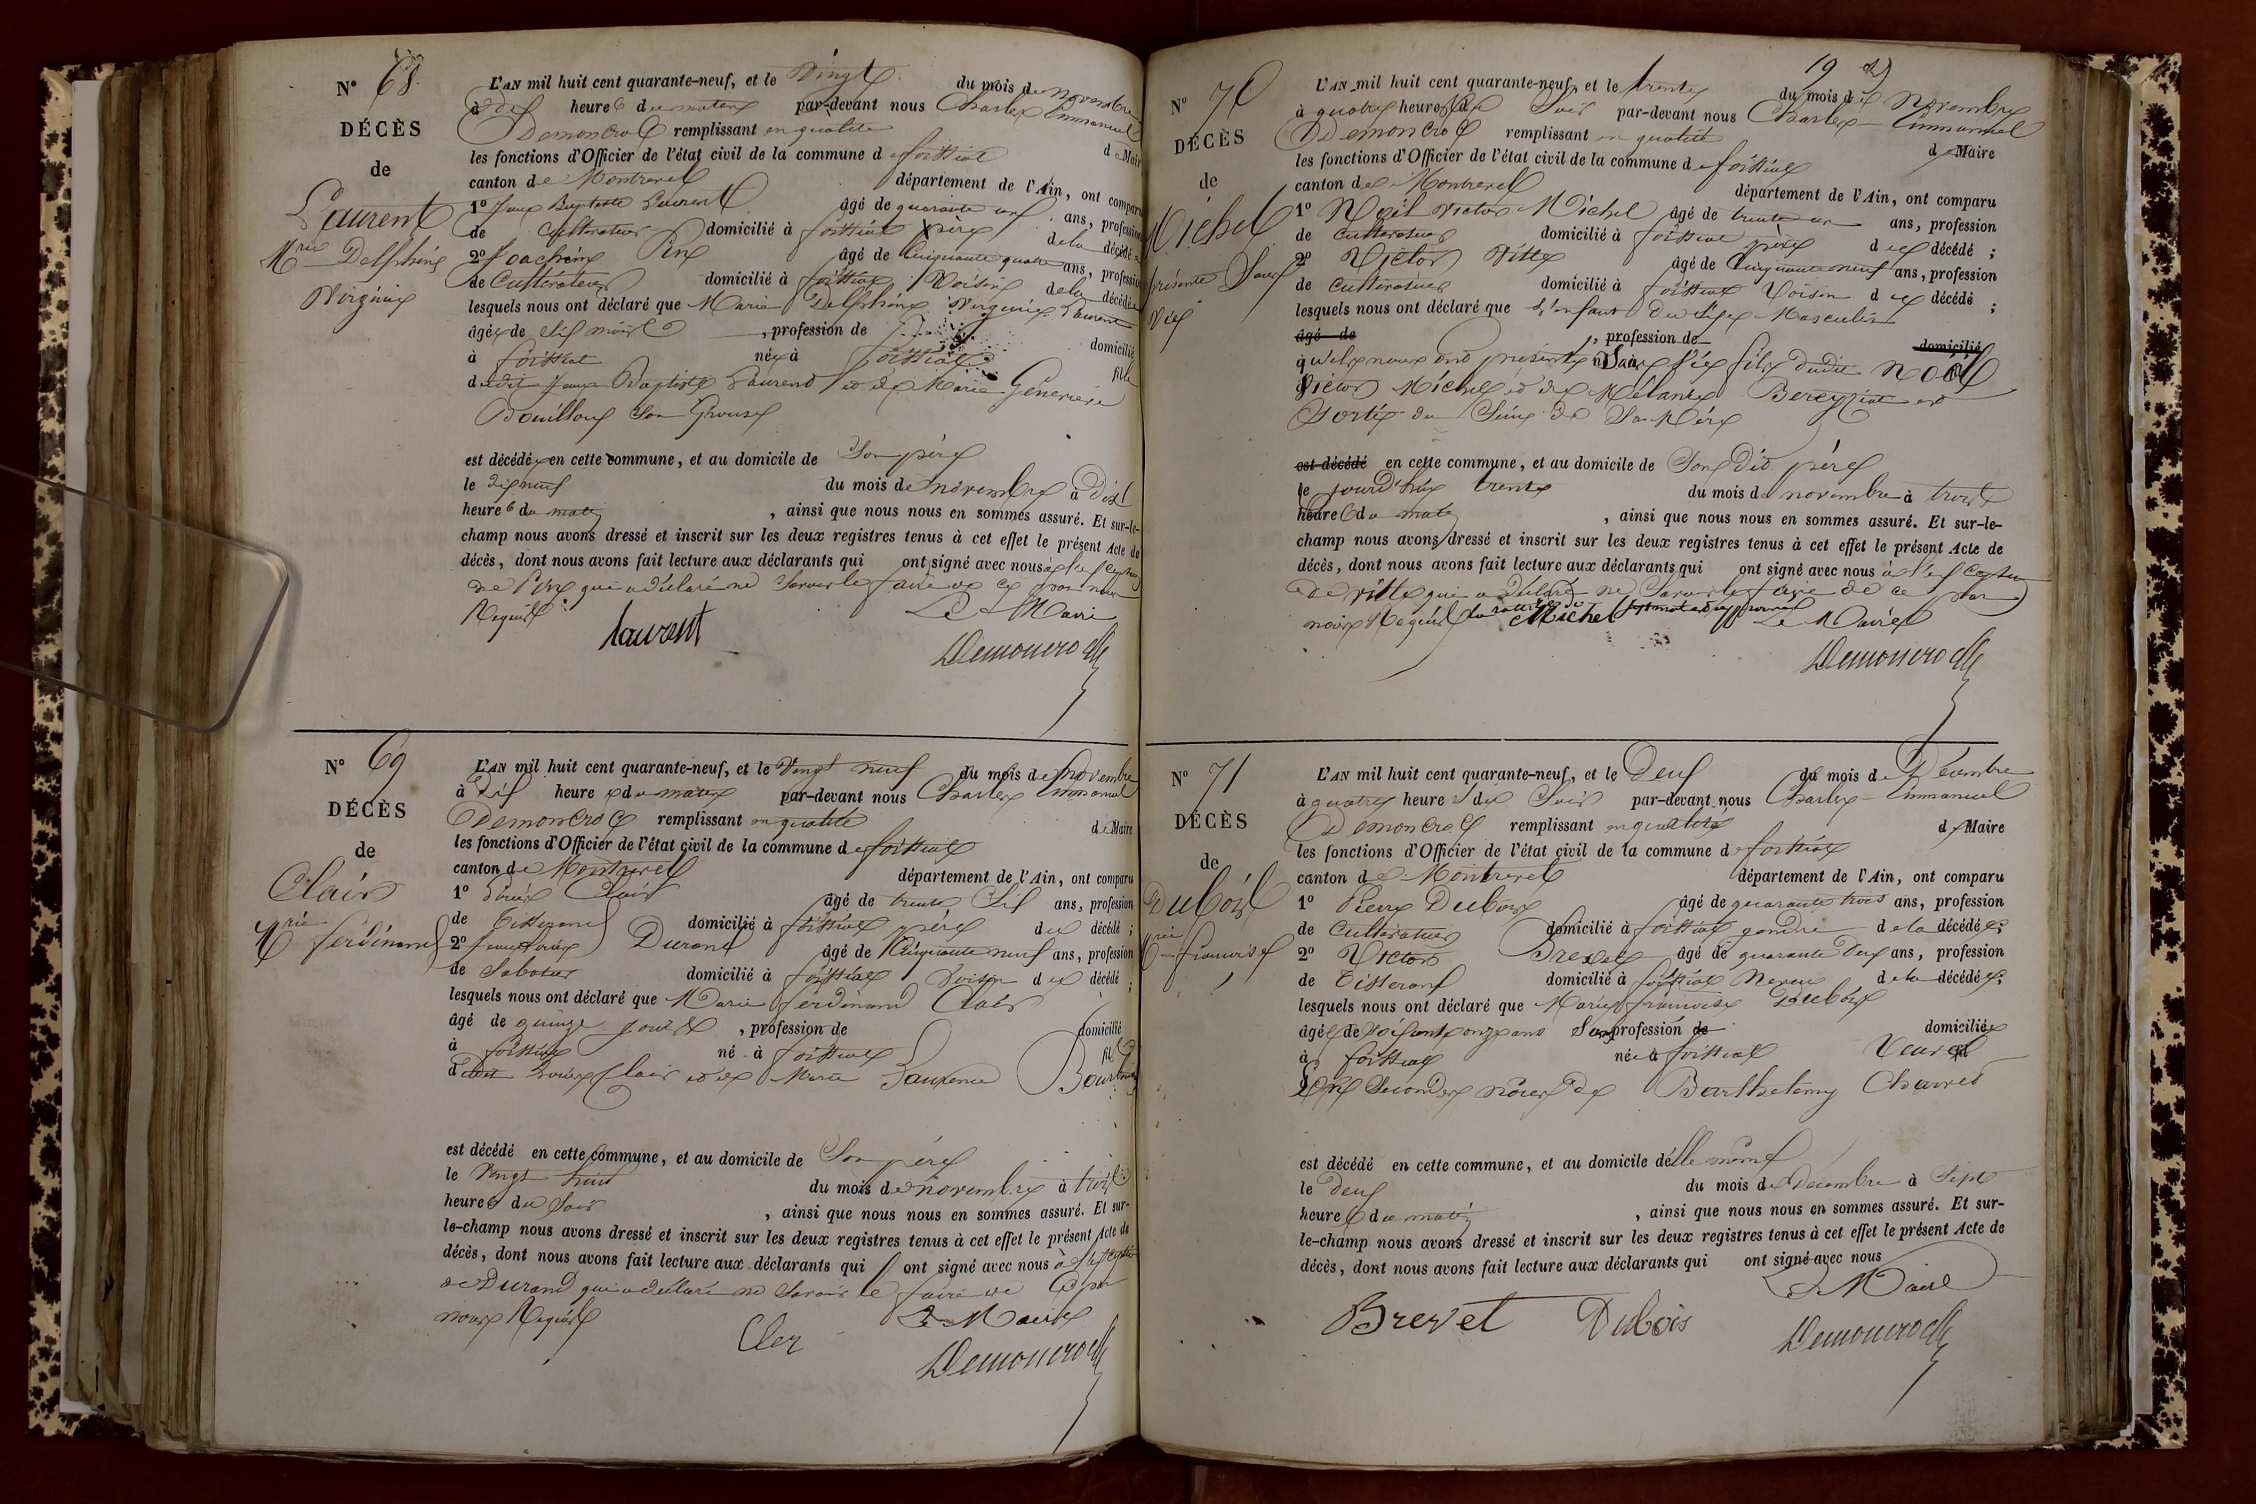 N° 68.
DÉCÈS
de
Laurent
Mrie Delphine
Virginie
L'AN mil huit cent quarante-neuf, et le Vingt du mois de novembre
à dix heures du matin par-devant nous Charles Emmanuel
Demoncroc remplissant en qualité de Maire
les fonctions d'Officier de l'état civil de la commune de foissiat
canton de Montrevel département de l'Ain, ont comparu
1° Jean Baptiste Laurent âgé de quarante un ans, profession
de Cultivateur domicilié à foissiat père de la décédée
2° Joachim Pin âgé de Cinquante quatre ans, profession
de Cultivateur domicilié à foissiat Voisin de la décédée
lesquels nous ont déclaré que Marie Delphine Virginie Laurent
âgée de dix mois , profession de domicilié
à foissiat née à foissiat fille
dudit Jean Baptiste Laurent et de Marie Génevieve
Bouilloux Son Epouse
est décédée en cette commune, et au domicile de Son père
le dix neuf du mois de novembre à Dix
heures du matin , ainsi que nous nous en sommes assuré. Et sur-le-
champ nous avons dressé et inscrit sur les deux registres tenus à cet effet le présent Acte de
décès, dont nous avons fait lecture aux déclarants qui ont signé avec nous à l'exception
de Pin qui a déclaré ne Savoir le faire de ce par nous
Requis Le Maire
laurent Demoncroc
N° 69
DÉCÈS
de
Clair
Mrie ferdinand
L'AN mil huit cent quarante-neuf, et le Vingt neuf du mois de novembre
à Dix heures du matin par-devant nous Charles Emmanuel
Demoncroc remplissant en qualité de Maire
les fonctions d'Officier de l'état civil de la commune de foissiat
canton de Montrevel département de l'Ain, ont comparu
1° Louis Clair âgé de trente Six ans, profession
de Tisserand domicilié à foissiat père du décédé ;
2° Durand âgé de Cinquante neuf ans, profession
de Sabotier domicilié à foissiat Voisin du décédé ;
lesquels nous ont déclaré que Marie ferdinand Clair
âgé de quinze jours , profession de domicilié
à foissiat né à foissiat fils
dudit Louis Clair et de Marie Laurence
est décédé en cette commune, et au domicile de Son père
le Vingt huit du mois de novembre à trois
heures du Soir , ainsi que nous nous en sommes assuré. Et sur-
le-champ nous avons dressé et inscrit sur les deux registres tenus à cet effet le présent Acte de
décès, dont nous avons fait lecture aux déclarants qui ont signé avec nous à l'exception
de Durand qui a déclaré ne Savoir le faire de ce par
nous Requis Le Maire
Cler Demoncroc
19
N° 70
DÉCÈS
de
Michel
présenté Sans
Vie
L'AN mil huit cent quarante-neuf, et le trente du mois de Novembre
à quatre heures du Soir par-devant nous Charles Emmanuel
Demoncroc remplissant en qualité de Maire
les fonctions d'Officier de l'état civil de la commune de foissiat
canton de Montrevel département de l'Ain, ont comparu
1° Noël Victor Michel âgé de trente un ans, profession
de Cultivateur domicilié à foissiat père du décédé ;
2° Victor Vitte âgé de Cinquante neuf ans, profession
de Cultivateur domicilié à foissiat Voisin du décédé ;
lesquels nous ont déclaré que l'enfant du Sexe Masculin
âgé de , profession de domicilié
qu'ils nous ont présenté Sans Vie fils dudit Noël
Victor Michel et de Mélanie Bereyziat est
Sorti du Sein de Sa Mère
est décédé en cette commune, et au domicile de Son Dit père
le jourd'hui trente du mois de novembre à trois
heures du matin , ainsi que nous nous en sommes assuré. Et sur-le-
champ nous avons dressé et inscrit sur les deux registres tenus à cet effet le présent Acte de
décès, dont nous avons fait lecture aux déclarants qui ont signé avec nous à l'exception
de Vitte qui a déclaré ne Savoir le faire de ce par
nous Requis Le Maire
Michel Demoncroc
N° 71
DÉCÈS
de
Dubois
Mrie francoise
L'AN mil huit cent quarante-neuf, et le Deux du mois de Décembre
à quatre heures du Soir par-devant nous Charles Emmanuel
Demoncroc remplissant en qualité de Maire
les fonctions d'Officier de l'état civil de la commune de foissiat
canton de Montrevel département de l'Ain, ont comparu
1° Pierre Dubois âgé de quarante trois ans, profession
de Cultivateur domicilié à foissiat gendre de la décédée ;
2° Victor Brevet âgé de quarante Deux ans, profession
de Tisserand domicilié à foissiat Neveu de la décédée ;
lesquels nous ont déclaré que Marie francoise Dubois
âgée de Soixante onze ans Sans profession de domiciliée
à foissiat née à foissiat Veuve
En Secondes noces de Barthelemy Charvet
est décédé en cette commune, et au domicile d'elle même
le Deux du mois de Décembre à Sept
heures du matin , ainsi que nous nous en sommes assuré. Et sur-
le-champ nous avons dressé et inscrit sur les deux registres tenus à cet effet le présent Acte de
décès, dont nous avons fait lecture aux déclarants qui ont signé avec nous
Le Maire
Brevet Dubois Demoncroc